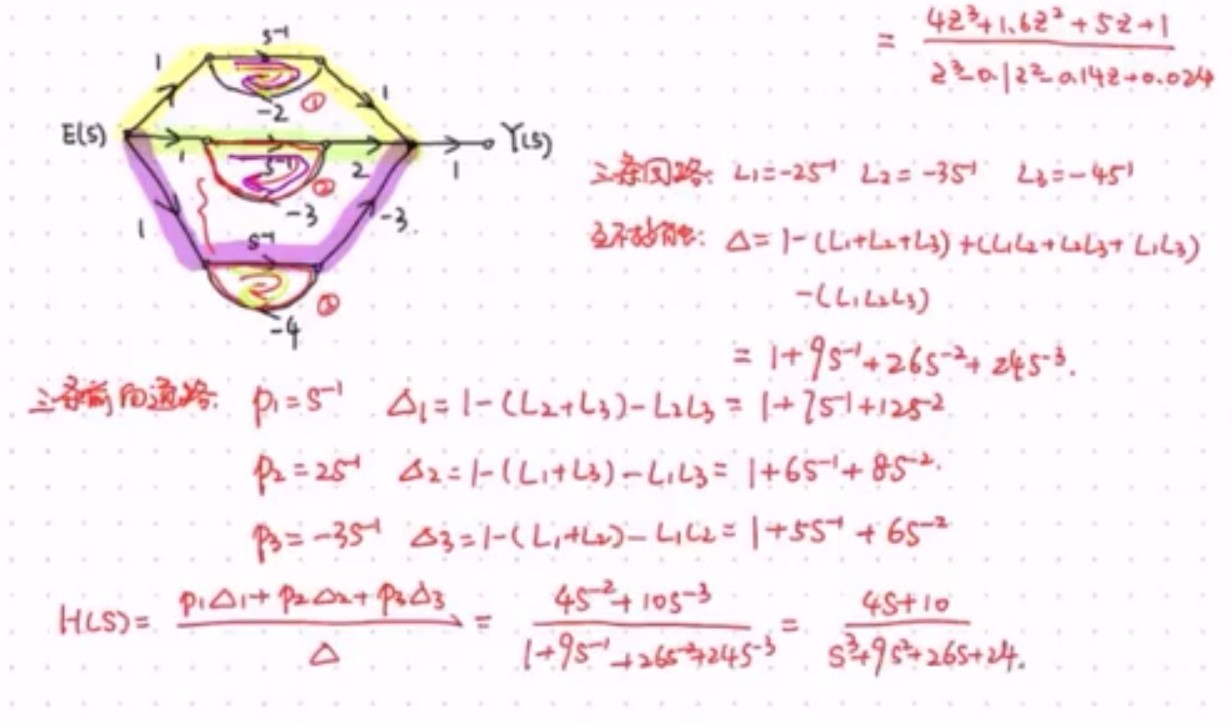 = (4z³+1.6z²+5z+1)/(z³-0.1z²-0.14z+0.024
s⁻¹
1
-2
①
1
E(S)
1
s⁻¹
②
2
1
Y(S)
-3
1
s⁻¹
-3.
-4
③
三条回路: L1=-2S⁻¹ L2=-3S⁻¹ L3=-4S¹
互不接触: Δ=1-(L1+L2+L3)+(L1L2+L2L3+L1L3)
-(L1L2L3)
= 1+9S⁻¹+26S⁻²+24S⁻³.
三条前向通路: p1=S⁻¹ Δ1=1-(L2+L3)-L2L3=1+7S⁻1+12S⁻²
p2=2S⁻¹ Δ2=1-(L1+L3)-L1L3=1+6S⁻¹+8S⁻².
p3=-3S⁻¹ Δ3=1-(L1+L2)-L1L2=1+5S⁻¹+6S⁻²
H(S)= (p1Δ1+p2Δ2+p3Δ3)/Δ = (4S⁻²+10S⁻³)/(1+9S⁻¹+26S⁻²+24S⁻³) = (4S+10)/(S³+9S²+26S+24.